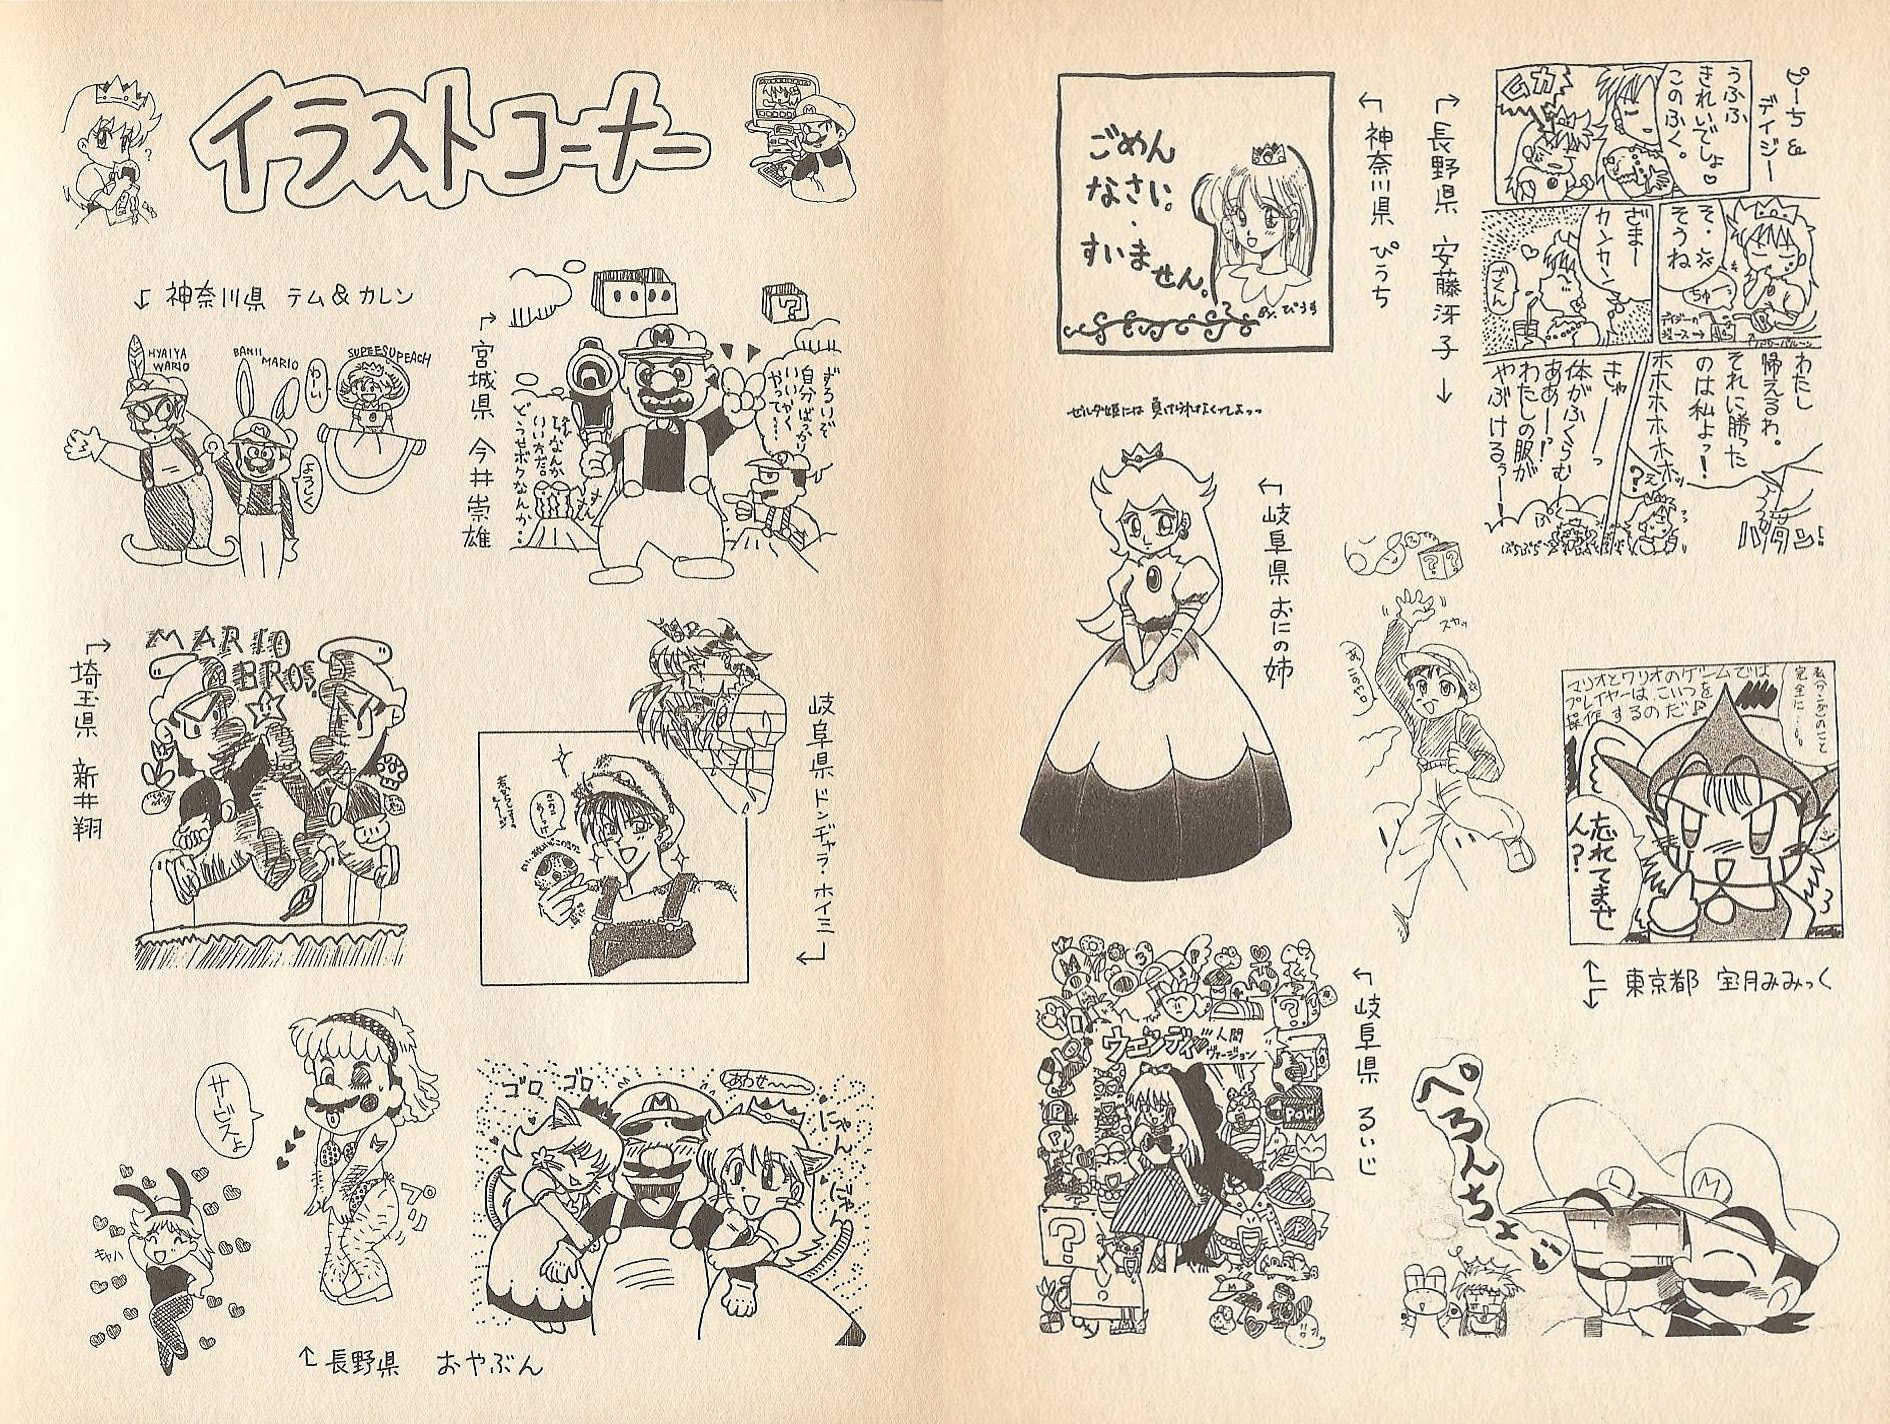 イラストコーナー
神奈川県 テム&カレン
HYAIYA
WARIO
BANII
MARIO
SUPEESUPEACH
わーい
よろしく
宮城県 今井崇雄
ずるいぞ
自分ばっかり
いいやくやって…
どうせボクなんか…
埼玉県 新井翔
MARIO
BROS.
岐阜県 ドンヂャラ・ホイミ
サービスよ
キャハ
長野県 おやぶん
ゴロ ゴロ
にゃん
M
ごめん
なさい。
すいません。
神奈川県 ぴうち
長野県 安藤冴子
ぴーち&
デイジー
うふふ
きれいでしょ♡
このふく。
ムカ
そ・・
そうね
ちゅー
ざまー
カンカン
ごくん
わたし
帰えるわ。
それに勝った
のは私よっ!
ホホホホホホホッ
きゃーーっ
体がふくらむー
ああー!?
わたしの服が
やぶけるぅー
ゼルダ姫には 負けられなくってよっっ
岐阜県 おにの姉
マリオとワリオのゲームでは
プレイヤーは、こいつを
操作するのだ♪
忘れてませ
人?
東京都 宝月みみっく
岐阜県 るいじ
ウエンディ 人間
ヴァージョン
POW
ぺろんちょ
L
M